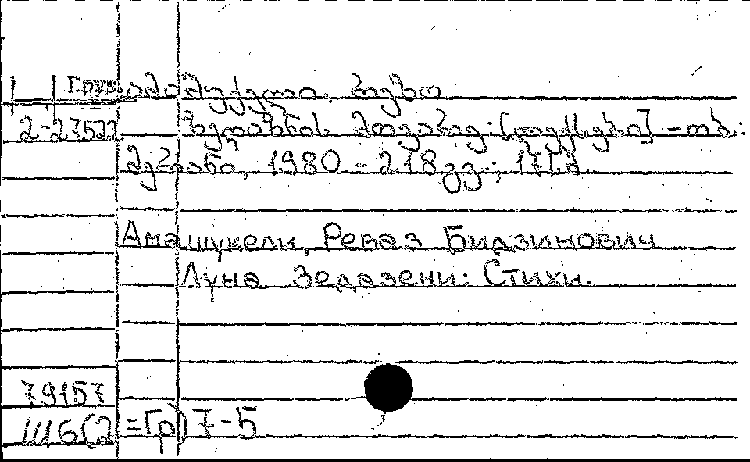 Груз. ამაშუკელი, რეზო
2-27522 ზედაზნის მთვარე: [ლექსები] -თბ.:
მერანი, 1980.- 218გვ.;
Амашукели, Реваз Бидзинович
Луна Зедазени: Стихи.
79157
Ш6(2=Гр)7-5